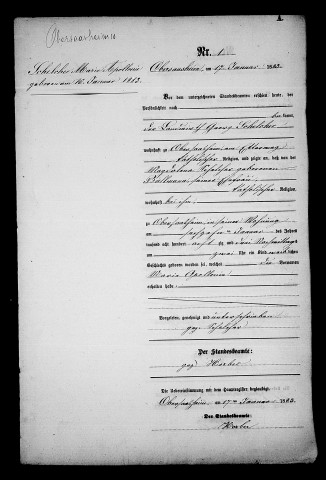 1.
Obersaasheim
Nr. 1
Schelcher Maria Apollonia
geboren am 16. Januar 1883.
Obersaasheim, am 17. Januar 1883.
Vor dem unterzeichneten Standesbeamten erschien heute, der
Persönlichkeit nach
kannt,
der Georg Schelcher
wohnhaft zu Obersaasheim
katholischer Religion, und zeigte an, daß von der
Magdalena Schelcher geborenen
seiner Ehefrau
katholischer Religion,
wohnhaft bei ihm
zu Obersaasheim in seiner Wohnung
am sechzehn ten Januar des Jahres
tausend acht hundert achtzig und drei Nachmittags
um zwei Uhr ein Kind weiblichen
Geschlechts geboren worden sei, welches die Vornamen
Maria Apollonia
erhalten habe.
Vorgelesen, genehmigt und unterschrieben
gez. Schelcher
Der Standesbeamte:
gez.
Die Uebereinstimmung mit dem Hauptregister beglaubigt
Obersaasheim, am 17ten Januar 1883.
Der Standesbeamte: